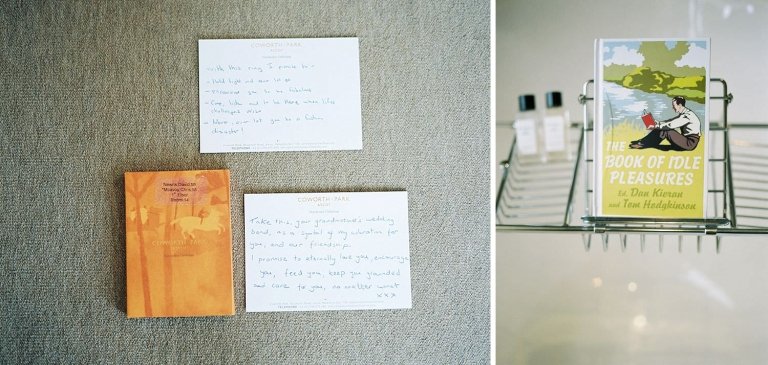 COWORTH · PARK
ASCOT
- with this ring I promise to -
- Hold tight and never let go
- you to be fabulous
- Care, listen and to be there when life's
challenges arise
- Never, ever let you be a fashion
disaster!
TELEPHONE
1st Floor
COWORTH PARK
COWORTH · PARK
ASCOT
Take this, your grandmother's wedding
band, as a symbol of my adoration for
you, and our friendship.
I promise to eternally love you, encourage
you, feed you, keep you grounded
and care for you, no matter what
xxx
TELEPHONE
THE
BOOK OF IDLE
PLEASURES
Ed. Dan Kieran
and Tom Hodgkinson